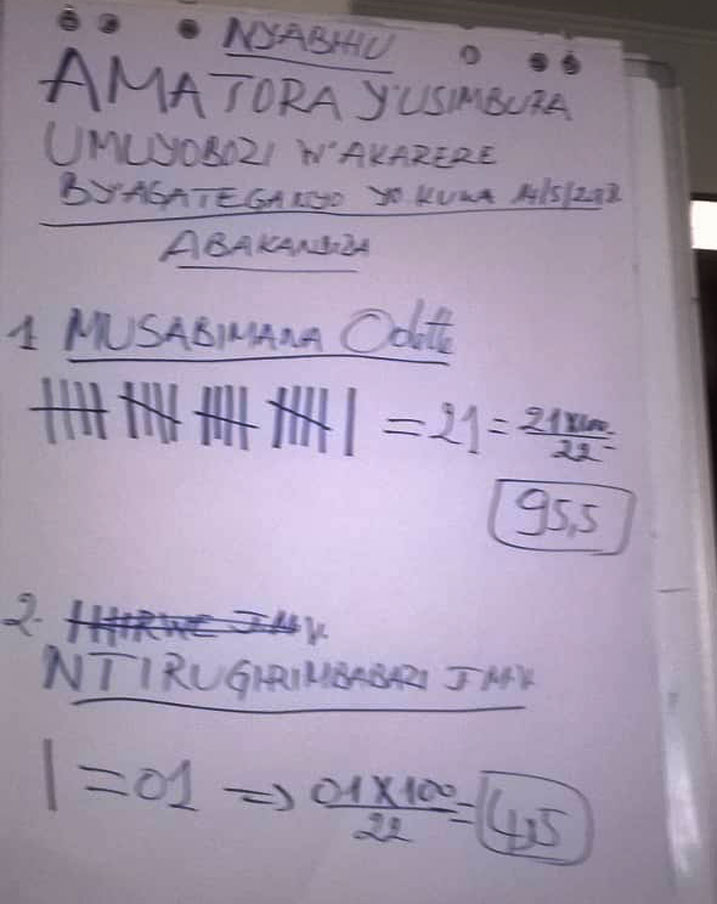 NYABIHU
AMATORA Y'USIMBURA
UMUYOBOZI W'AKARERE
BY'AGATEGANYO YO KUWA 14/5/2018
ABAKANDIDA
1 MUSABIMANA Odette
= 21 = 21x100 / 22 =
95,5
2.
NTIRUGIRIMBABAZI JMV
| = 01 => 01 X 100 / 22 = 4,5